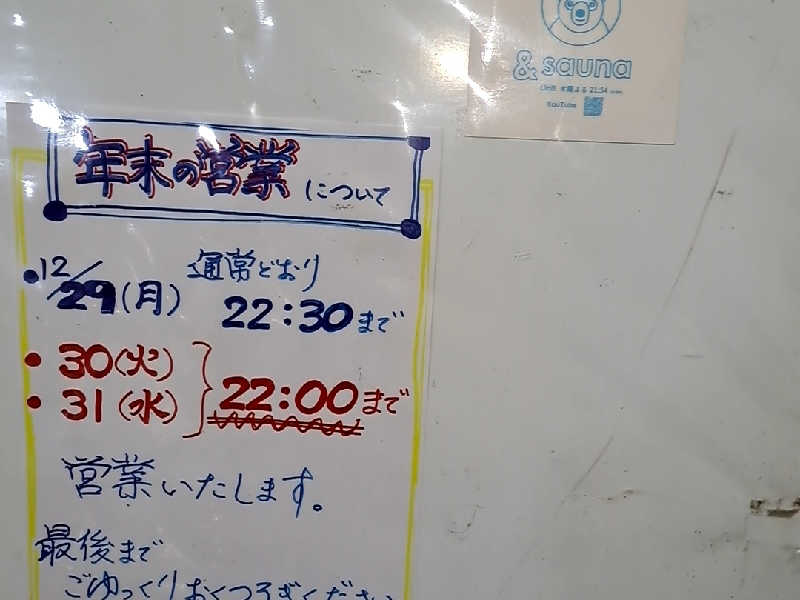 & sauna
YouTube
年末の営業について
・12/29(月) 通常どおり
22:30まで
・30(火)
・31(水)
22:00まで
営業いたします。
最後まで
ごゆっくりおくつろぎください